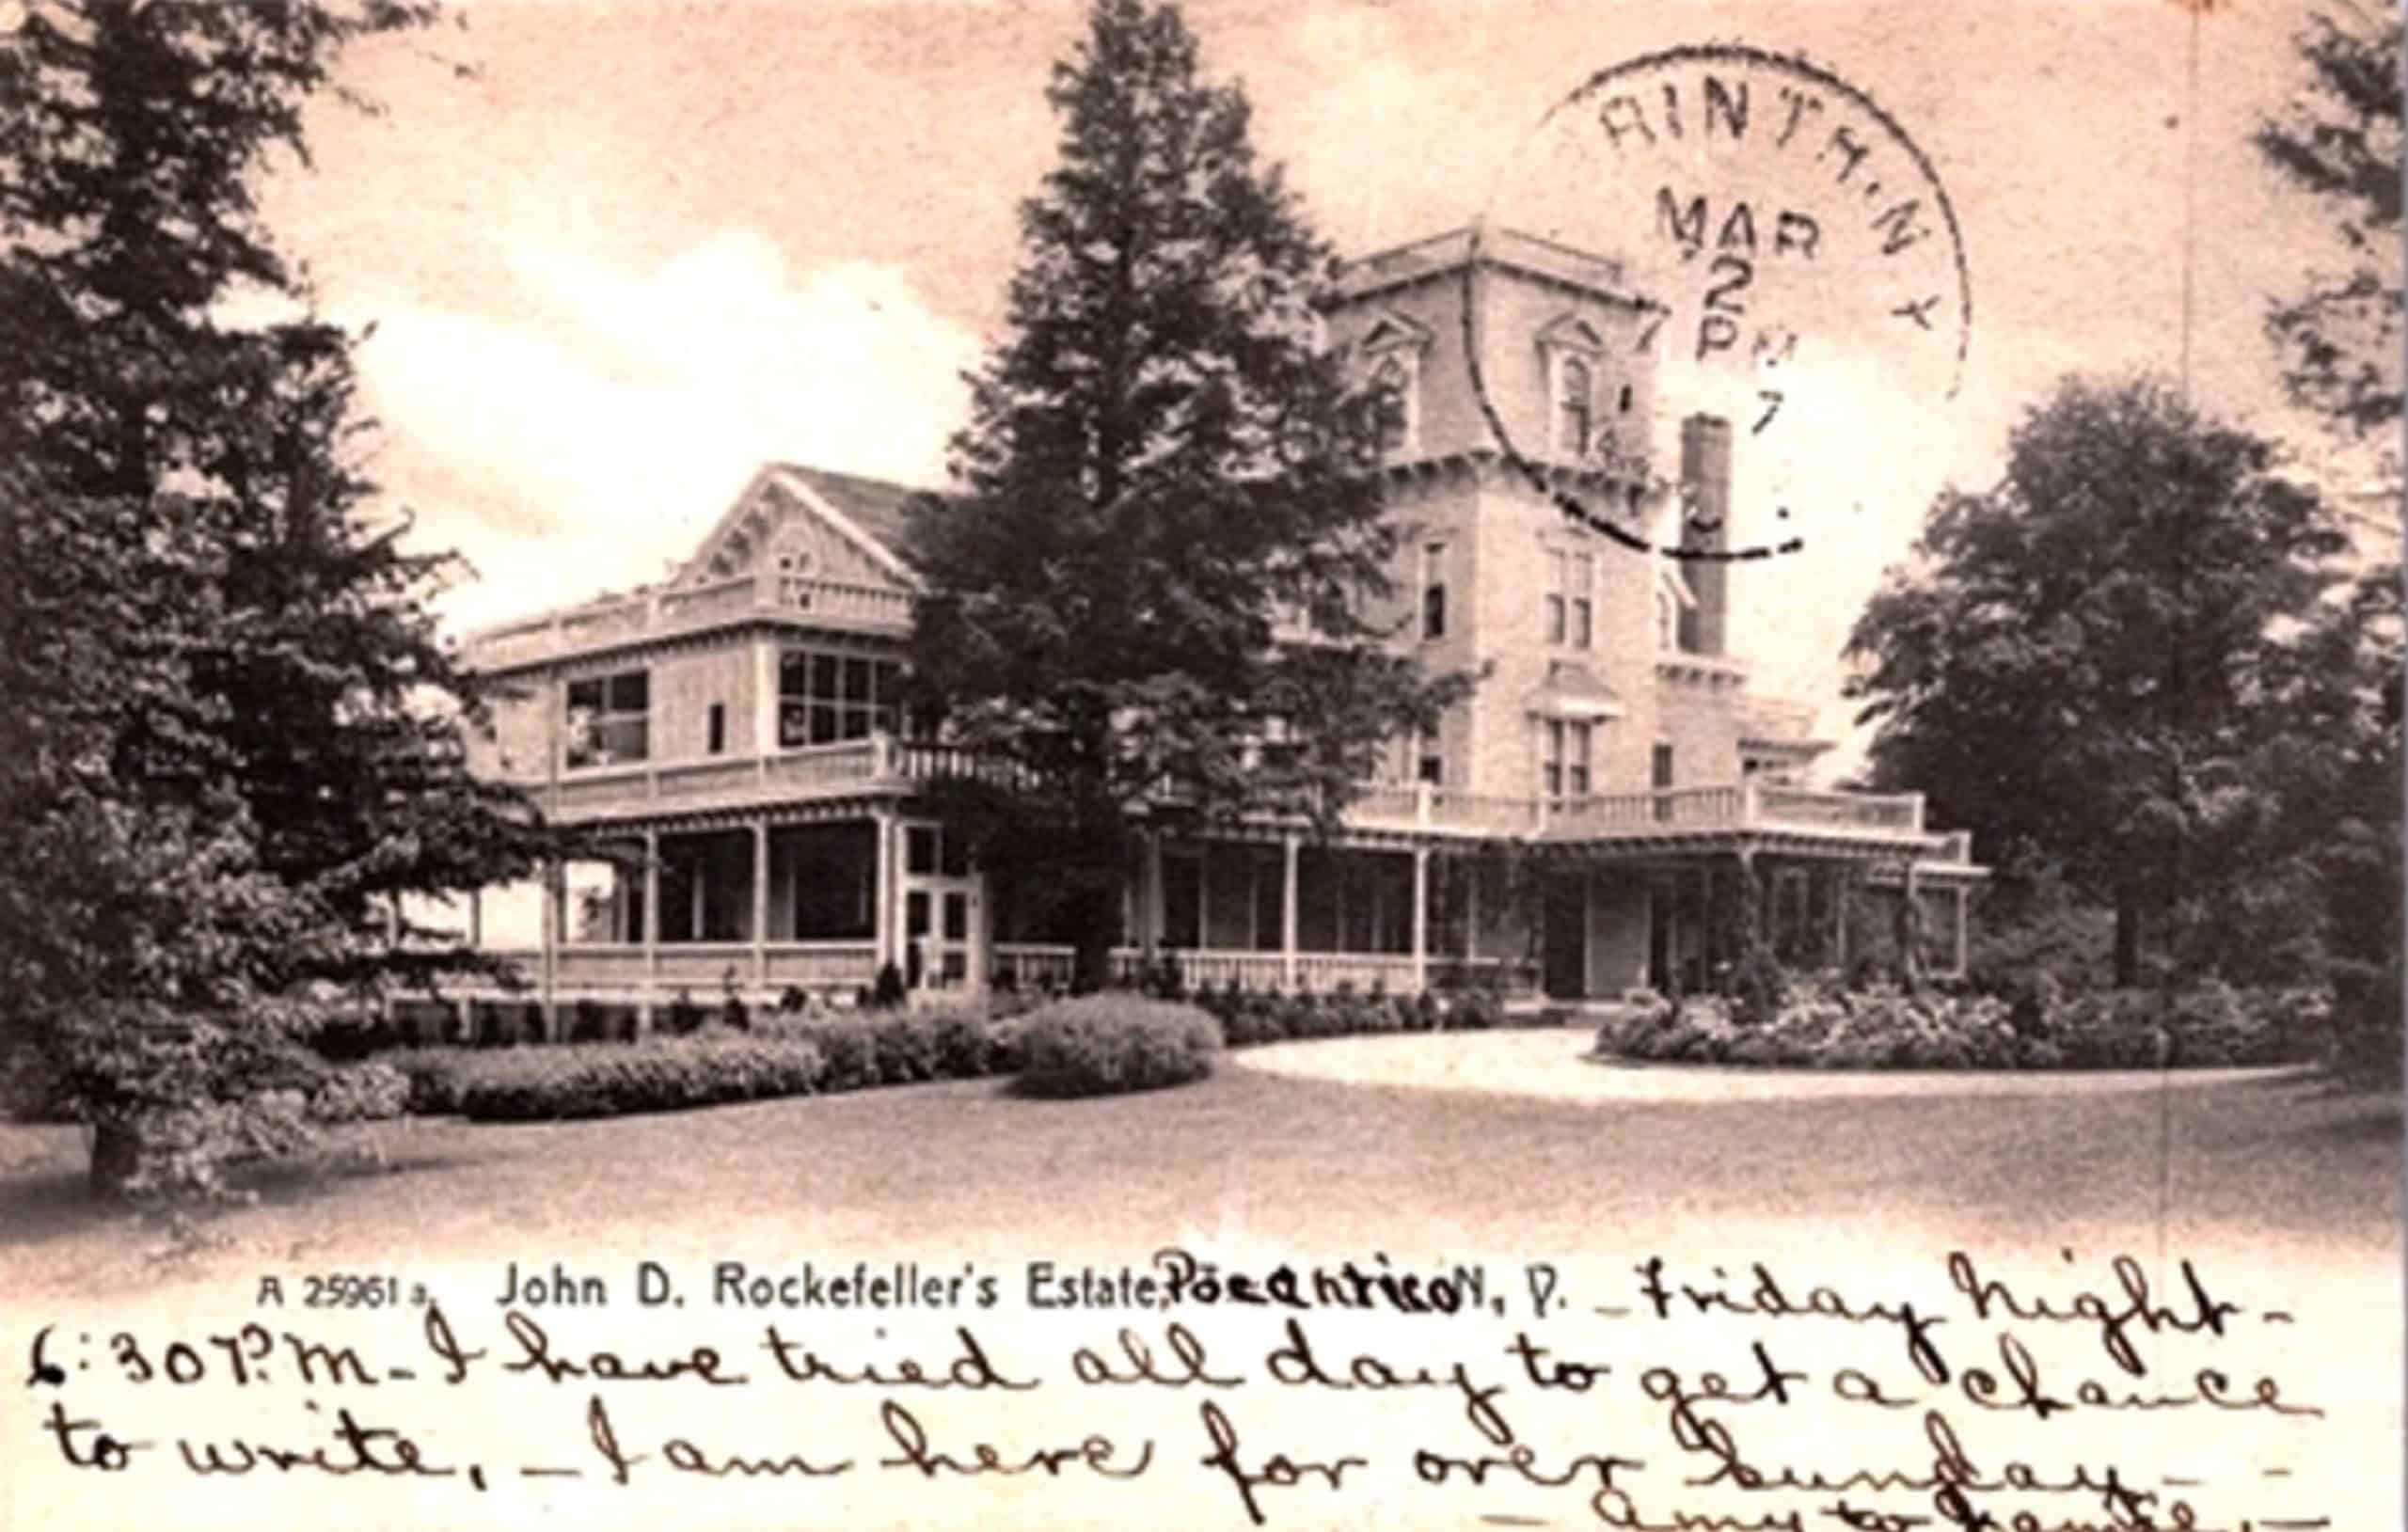 RINTH. N Y
MAR
2
PM
7
A 25961 a. John D. Rockefeller's Estate, Pocantico N. Y. – Friday night –
6:30 P.M – I have tried all day to get a chance
to write, – I am here for over Sunday – –
– Amy to